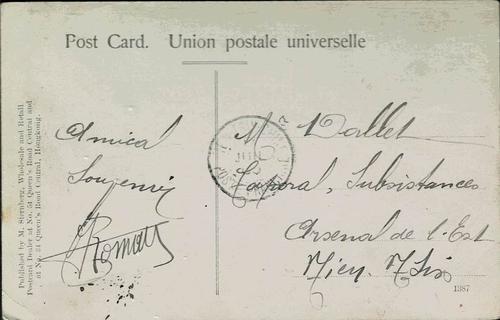 Post Card. Union postale universelle
Published by M. Sternberg, Wholesale and Retail
Postcard Dealer at No. 51 Queen's Road Central and
at No. 34 Queen's Road Central, Hongkong.
Amical
Souvenir
M Vallet
Caporal, Subsistances
Arsenal de l'Est
1387